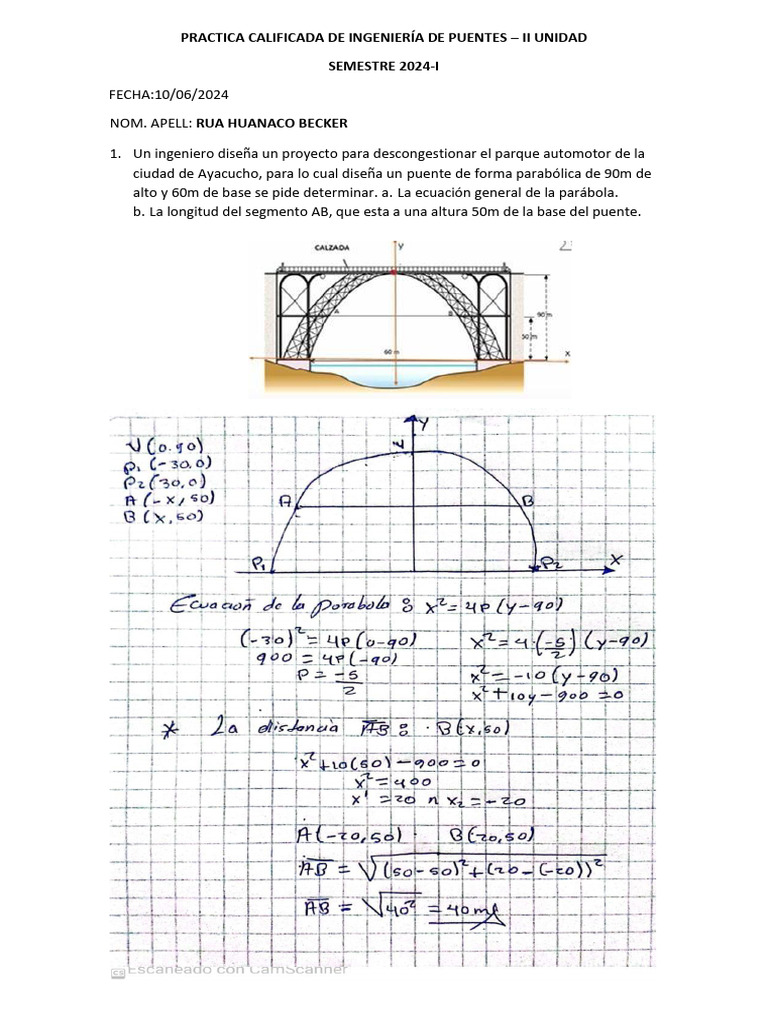 PRACTICA CALIFICADA DE INGENIERÍA DE PUENTES – II UNIDAD
SEMESTRE 2024-I
FECHA:10/06/2024
NOM. APELL: RUA HUANACO BECKER
1. Un ingeniero diseña un proyecto para descongestionar el parque automotor de la
ciudad de Ayacucho, para lo cual diseña un puente de forma parabólica de 90m de
alto y 60m de base se pide determinar. a. La ecuación general de la parábola.
b. La longitud del segmento AB, que esta a una altura 50m de la base del puente.
CALZADA
Y
A
B
90 m
50 m
60 m
X
V(0.90)
P1(-30,0)
P2(30,0)
A(-x,50)
B(x,50)
Y
V
A
B
P1
P2
X
Ecuación de la parabola: x²=4P(y-90)
(-30)²=4P(0-90)
900=4P(-90)
P=-5/2
x²=4.(-5/2)(y-90)
x²=-10(y-90)
x²+10y-900=0
* La distancia AB: B(x,50)
x²+10(50)-900=0
x²=400
x¹=20 n x2=-20
A(-20,50) B(20,50)
AB=√(50-50)²+(20-(-20))²
AB=√40²=40ml
CS Escaneado con CamScanner